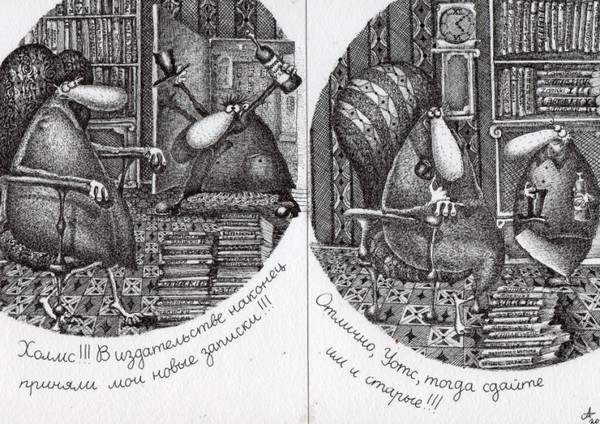 Холмс!!! В издательстве наконец
приняли мои новые записки!!!
Отлично, Уотс, тогда сдайте
им и старые!!!